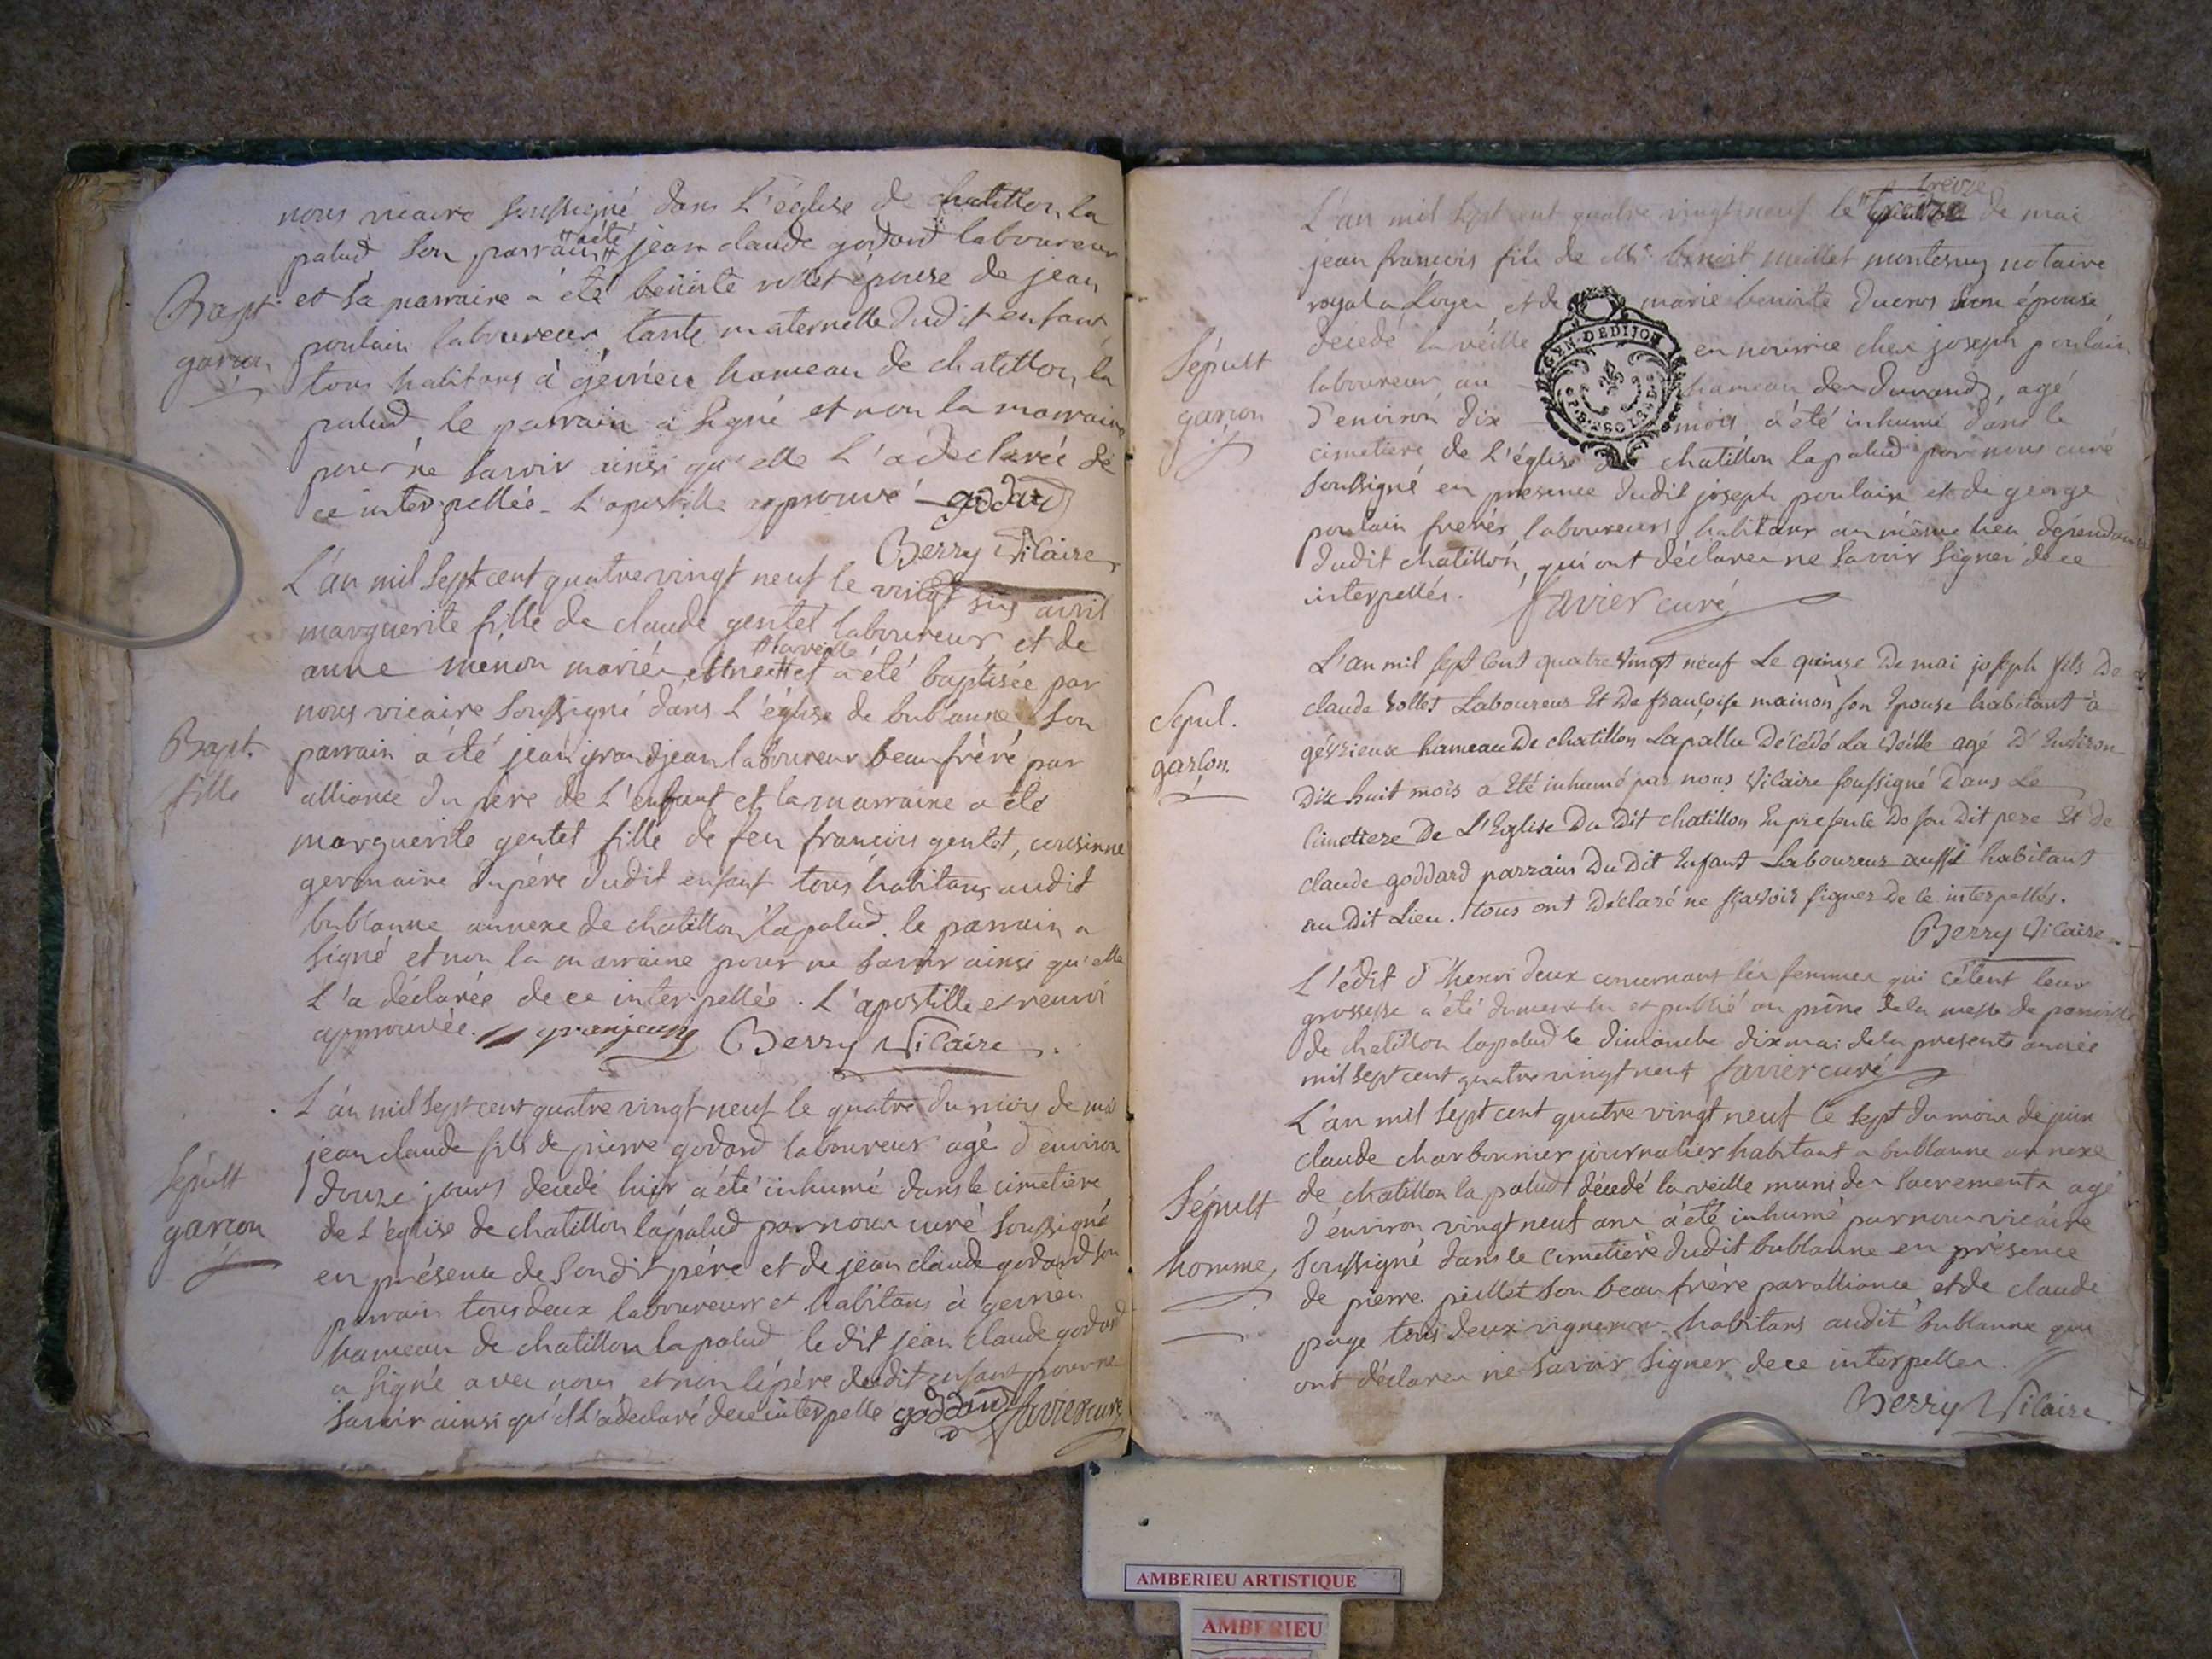 nous vicaire soussigné dans L'église de chatillon la
palud son parrain a été jean claude godard laboureur
Bapt.
garçon
et sa marraine a été benoite rollet épouse de jean
poulain laboureur, tante maternelle dudit enfant,
tous habitans à gévrieu hameau de chatillon la
palud le parrain a signé et non la marraine
pour ne savoir ainsi qu'elle L'a declarée de
ce interpellée. L'apostille approuvé goddard
Berry Vicaire
L'an mil sept cent quatre vingt neuf le vingt six avril
marguerite fille de claude gentet laboureur et de
la veille
anne menon mariés et née a été baptisée par
nous vicaire soussigné dans L'église de bublanne son
Bapt.
fille
parrain a été jean grandjean laboureur beau frére par
alliance du pere de L'enfant et la marraine a été
marguerite gentet fille de feu francois gentet, cousinne
germaine du père dudit enfant tous habitans audit
bublanne annexe de chatillon lapalud. le parrain a
signé et non la marraine pour ne savoir ainsi qu'elle
L'a déclarée de ce interpellée. L'apostille et renvoi
approuvée. granjean Berry Vicaire.
L'an mil sept cent quatre vingt neuf le quatre du mois de mai
jean claude fils de pierre godard laboureur agé d'environ
Sépult
garçon
douze jours decedé hier a été inhumé dans le cimetiere
de L'église de chatillon lapalud par nous curé soussigné
en présence de son dit père et de jean claude godard son
parrain tous deux laboureurs et habitans à gevrieu
hameau de chatillon lapalud le dit jean claude godard
a signé avec nous et non le père dudit enfant pour ne
savoir ainsi qu'il L'a declaré de ce interpellé goddard favier curé
treize
L'an mil sept cent quatre vingt neuf le de mai
jean francois fils de Mr benoit meillet montessuy notaire
royal a Loyes et de marie benoite ducros son épouse
Sépult
garçon
decedé la veille en nourrice chez joseph poulain
laboureur au hameau des durands, agé
d'environ dix mois a été inhumé dans le
cimetiere de L'église de chatillon lapalud par nous curé
GEN. DE DIJON
soussigné en presence dudit joseph poulain et de george
poulain freres laboureurs habitans au même lieu dépendant
dudit chatillon, qui ont déclarer ne savoir signer de ce
interpellés. favier curé
L'an mil sept cent quatre vingt neuf Le quinze De mai joseph fils De
Sepul.
garson.
claude Rollet Laboureur Et De françoise mainon son Epouse habitant à
gévrieux hameau De chatillon Lapallu Décédé La Veille agé D'Environ
Dix huit mois a Eté inhumé par nous Vicaire soussigné Dans Le
Cimetiere De L'Eglise Du Dit chatillon En presence De son Dit pere Et De
claude goddard parrain Du Dit Enfant Laboureur aussi habitant
au Dit Lieu. tous ont Déclaré ne sçavoir signer De Ce interpellés.
Berry Vicaire
L'édit d'henri deux concernant les femmes qui célent leur
grossesse a été dument lu et publié au prône de la messe de paroisse
de chatillon lapalud le dimanche dix mai de la presente année
mil sept cent quatre vingt neuf favier curé
L'an mil sept cent quatre vingt neuf le sept du mois de juin
claude charbonnier journalier habitant a bublanne annexe
Sépult
homme
de chatillon la palud décedé la veille muni des sacrements agé
d'environ vingt neuf ans a été inhumé par nous vicaire
soussigné dans le cimetiére dudit bublanne en présence
de pierre peillet son beau frére par alliance et de claude
page tous deux vignerons habitans audit bublanne qui
ont déclarer ne savoir signer de ce interpelles.
Berry Vicaire.
AMBERIEU ARTISTIQUE
AMBERIEU